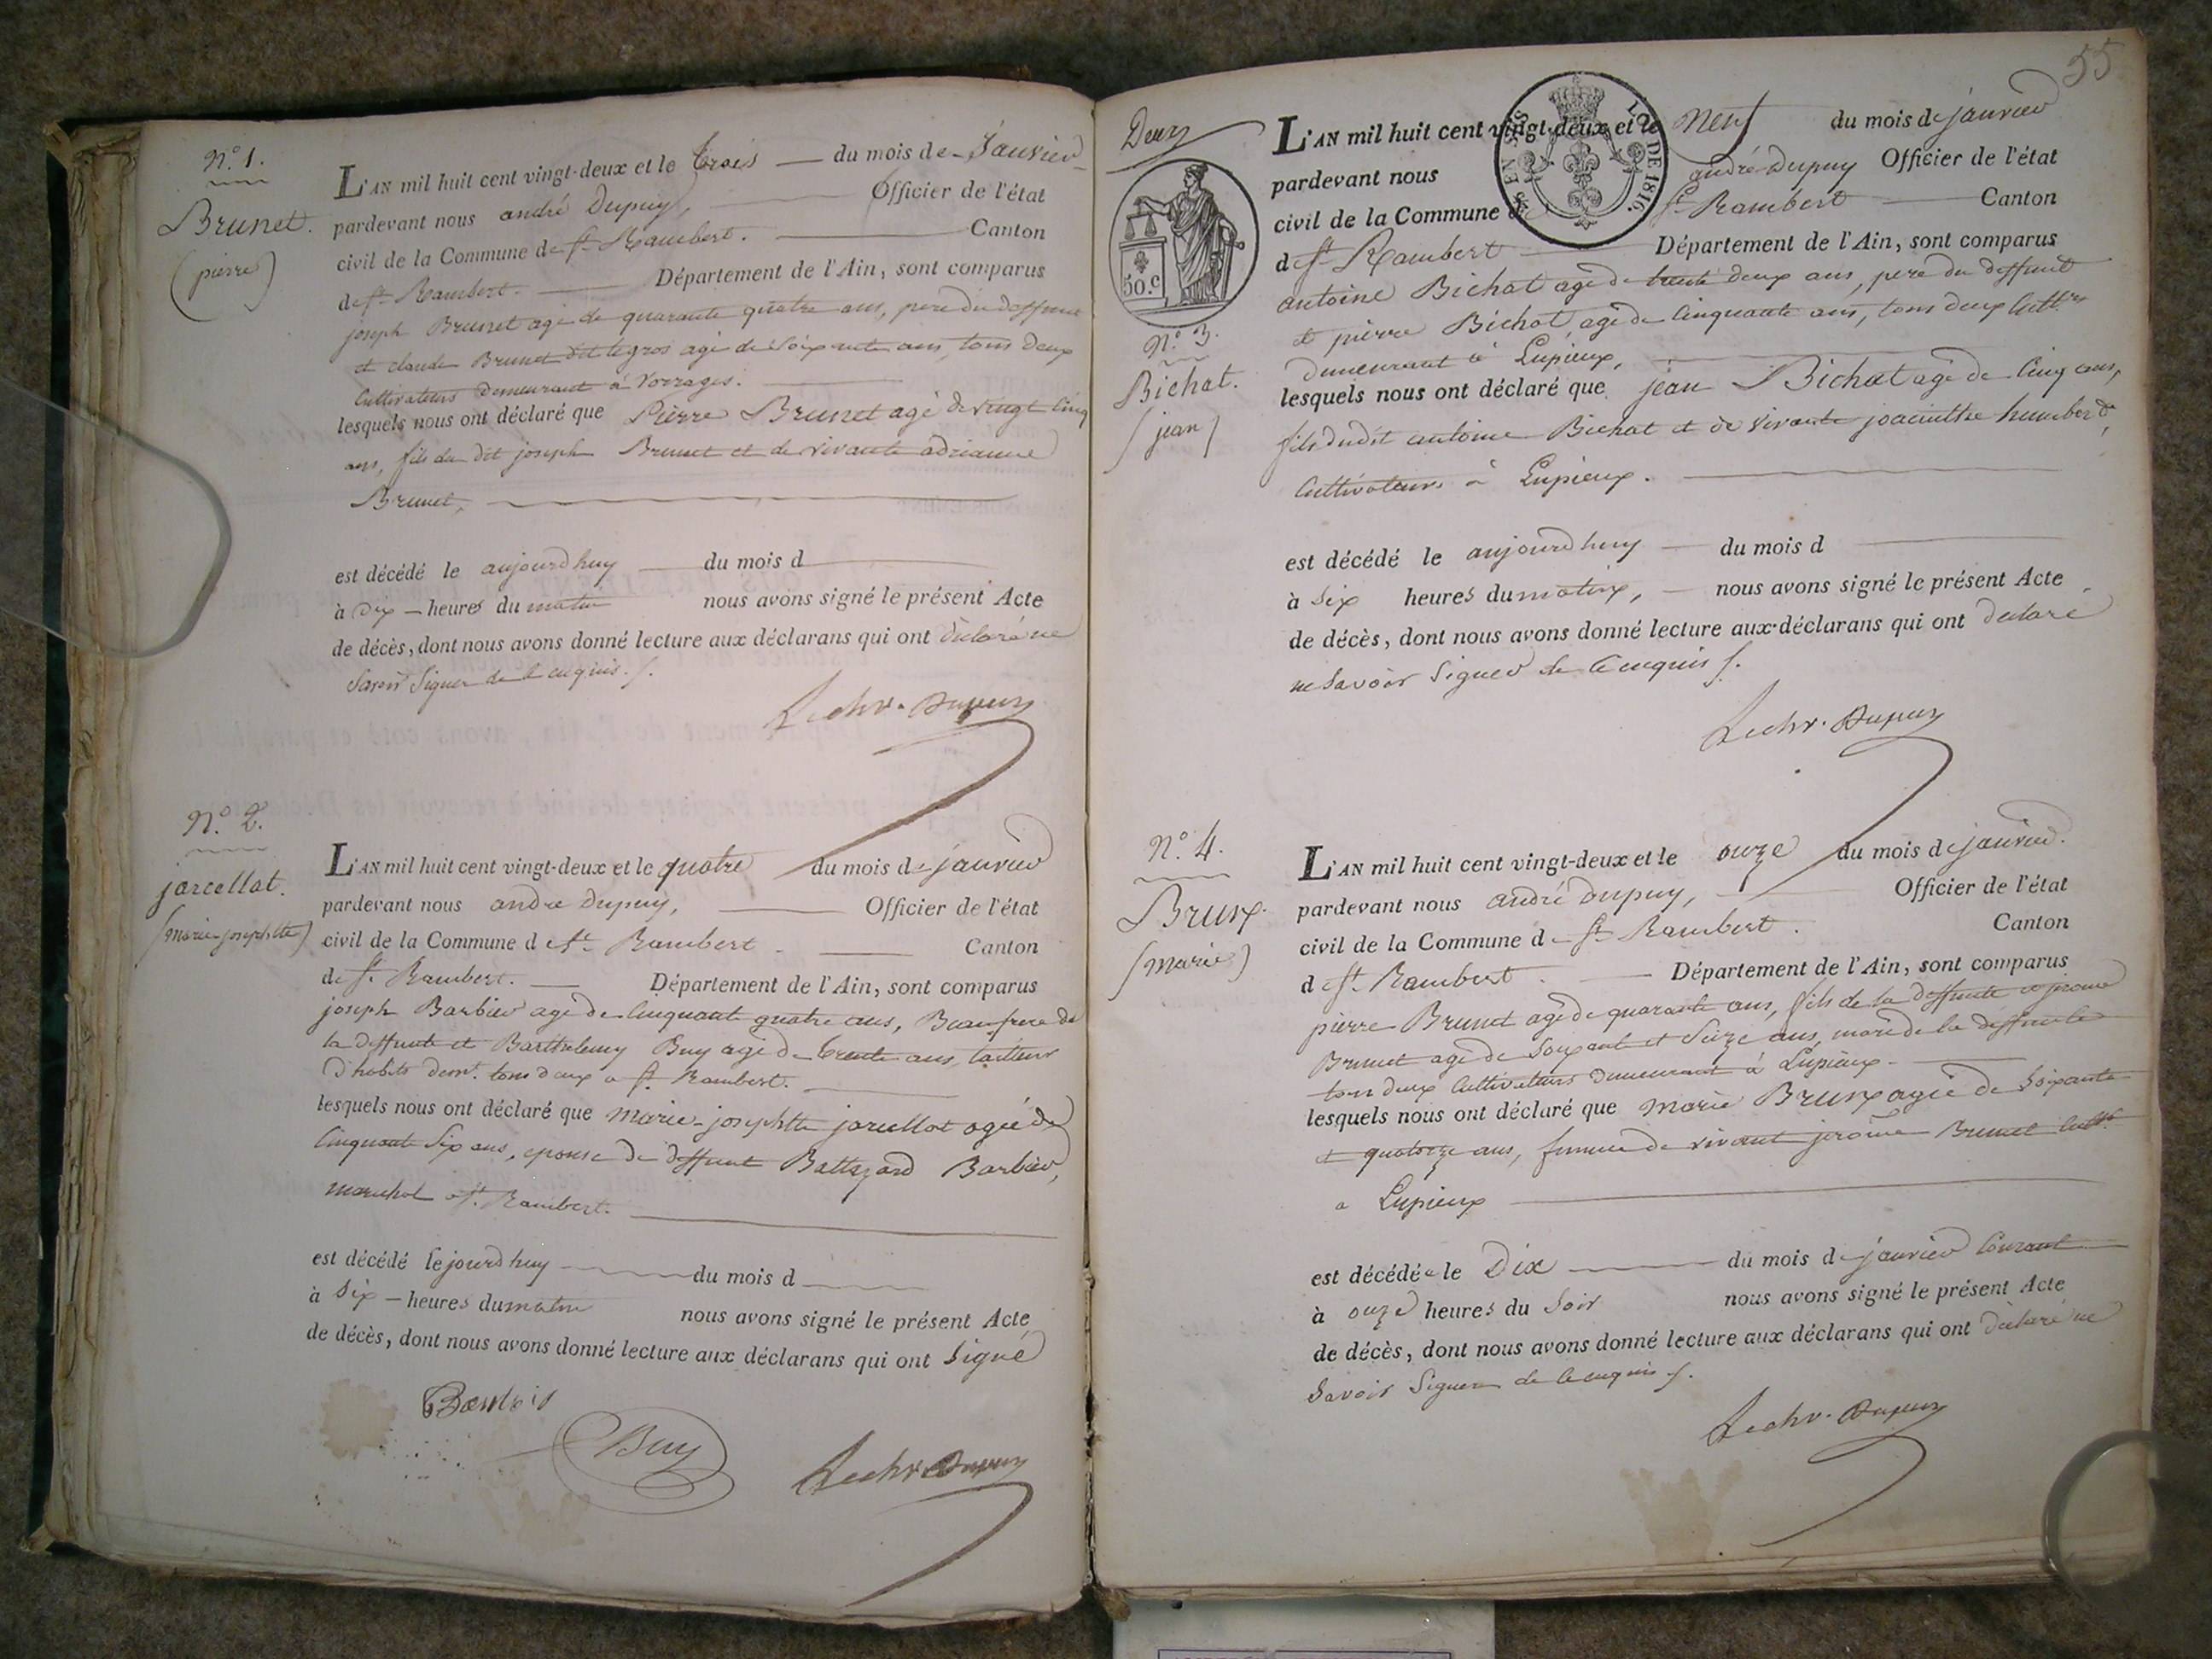 N.º 1.
Brunet.
(pierre)
L'AN mil huit cent vingt-deux et le trois du mois de Janvier
pardevant nous andré Dupuy, Officier de l'état
civil de la Commune de St Rambert. Canton
de St Rambert. Département de l'Ain, sont comparus
joseph Brunet agé de quarante quatre ans, pere du deffunt
et claude Brunet dit legros agé de Soixante ans, tous deux
Cultivateurs demeurant à Vorrages.
lesquels nous ont déclaré que Pierre Brunet agé de vingt Cinq
ans, fils du dit joseph Brunet et de vivante adrianne
Brunet,
est décédé le aujourdhuy du mois d
à dix heures du matin nous avons signé le présent Acte
de décès, dont nous avons donné lecture aux déclarans qui ont déclaré ne
Savoir Signer de ce enquis /.
Le chr. Dupuy
N.º 2.
jarcellat.
(marie josephtte)
L'AN mil huit cent vingt-deux et le quatre du mois de janvier
pardevant nous andré Dupuy, Officier de l'état
civil de la Commune d St Rambert Canton
de St Rambert. Département de l'Ain, sont comparus
joseph Barbier agé de Cinquante quatre ans, Beaufrere de
la deffunte et Barthelemy Buy agé de trente ans, tailleurs
d'habits demt. tous deux a St Rambert.
lesquels nous ont déclaré que marie-josephtte jarcellat agée de
Cinquante Six ans, epouse de deffunt Baltazard Barbier,
marechal a St. Rambert.
est décédé le jourdhuy du mois d
à Six heures du matin nous avons signé le présent Acte
de décès, dont nous avons donné lecture aux déclarans qui ont Signé
Buy
Le chr Dupuy
55
Deux
50.C
LOI DE 1816.
L'AN mil huit cent vingt-deux et le Neuf du mois de janvier
pardevant nous andré Dupuy Officier de l'état
civil de la Commune de St Rambert Canton
d St Rambert Département de l'Ain, sont comparus
antoine Bichat agé de trente deux ans, pere du deffunt
et pierre Bichat agé de Cinquante ans, tous deux Cultrs
demeurant à Lupieux,
N.º 3.
Bichat.
(jean)
lesquels nous ont déclaré que jean Bichat agé de Cinq ans,
fils dudit antoine Bichat et de vivante joacinthe humbert,
Cultivateurs à Lupieux.
est décédé le aujourdhuy du mois d
à Six heures du matin, nous avons signé le présent Acte
de décès, dont nous avons donné lecture aux déclarans qui ont déclaré
ne Savoir Signer de Ce enquis /.
Le chr. Dupuy
N.º 4.
Brunx.
(marie)
L'AN mil huit cent vingt-deux et le onze du mois de janvier.
pardevant nous andré Dupuy, Officier de l'état
civil de la Commune d St Rambert. Canton
d St Rambert. Département de l'Ain, sont comparus
pierre Brunet agé de quarante ans, fils de la deffunte et jerome
Brunet agé de Soixante et Seize ans, mari de la deffunte
tous deux Cultivateurs demeurant à Lupieux.
lesquels nous ont déclaré que marie Brunx agée de Soixante
et quatorze ans, femme de vivant jerôme Brunet Cultr
a Lupieux
est décédée le Dix du mois d janvier Courant
à onze heures du Soir nous avons signé le présent Acte
de décès, dont nous avons donné lecture aux déclarans qui ont déclaré ne
Savoir Signer de Ce enquis /.
Le chr. Dupuy